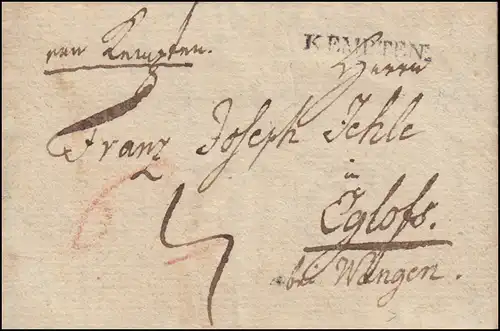 von Kempten.
KEMPTEN.
Herrn
Franz Joseph Jehle
in
Eglofs.
bei Wangen.